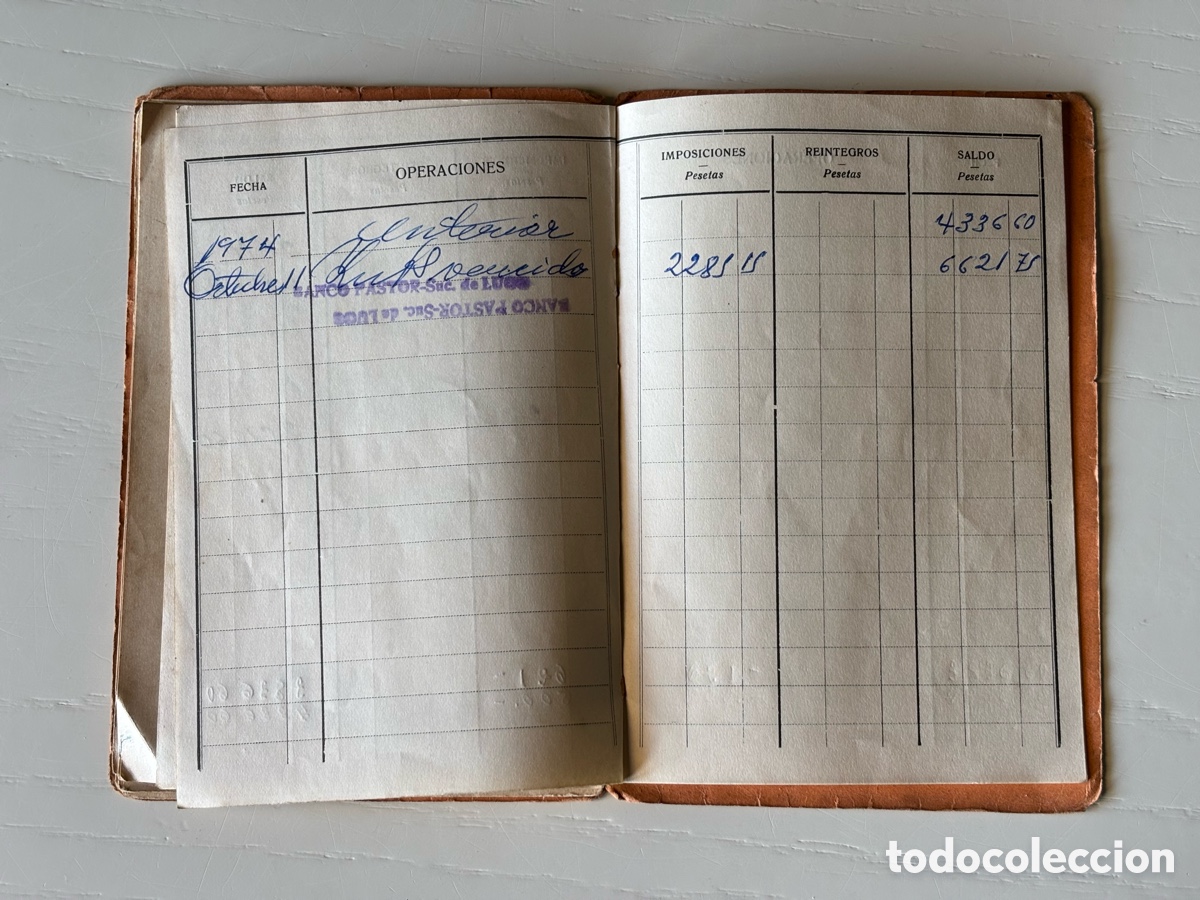 FECHA OPERACIONES IMPOSICIONES REINTEGROS SALDO
Pesetas Pesetas Pesetas
1974 Anterior 4336 60
Octubre 11 vencido 2285 15 6621 75
BANCO PASTOR-Suc. de LUGO
BANCO PASTOR-Suc. de LUGO
todocoleccion